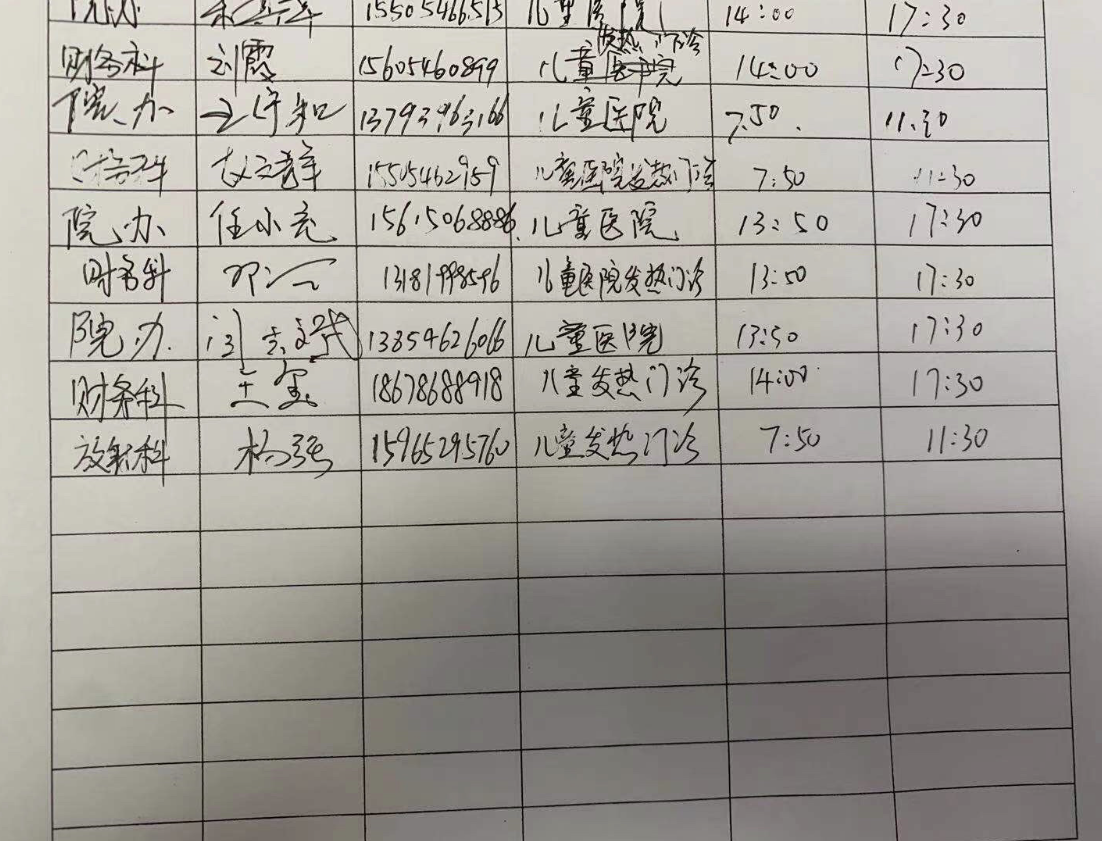 15505466515 儿童医院 14:00 17:30
财务科 刘霞 15605460899 儿童医院 发热门诊 14:00 17:30
院办 王守知 13793963166 儿童医院 7:50 11:30
财务科 15505462959 儿童医院发热门诊 7:50 11:30
院办 任小充 15615068886 儿童医院 13:50 17:30
财务科 儿童医院发热门诊 13:50 17:30
院办 13854626066 儿童医院 13:50 17:30
财务科 王玺 18678688918 儿童发热门诊 14:00 17:30
放射科 杨强 15965295760 儿童发热门诊 7:50 11:30